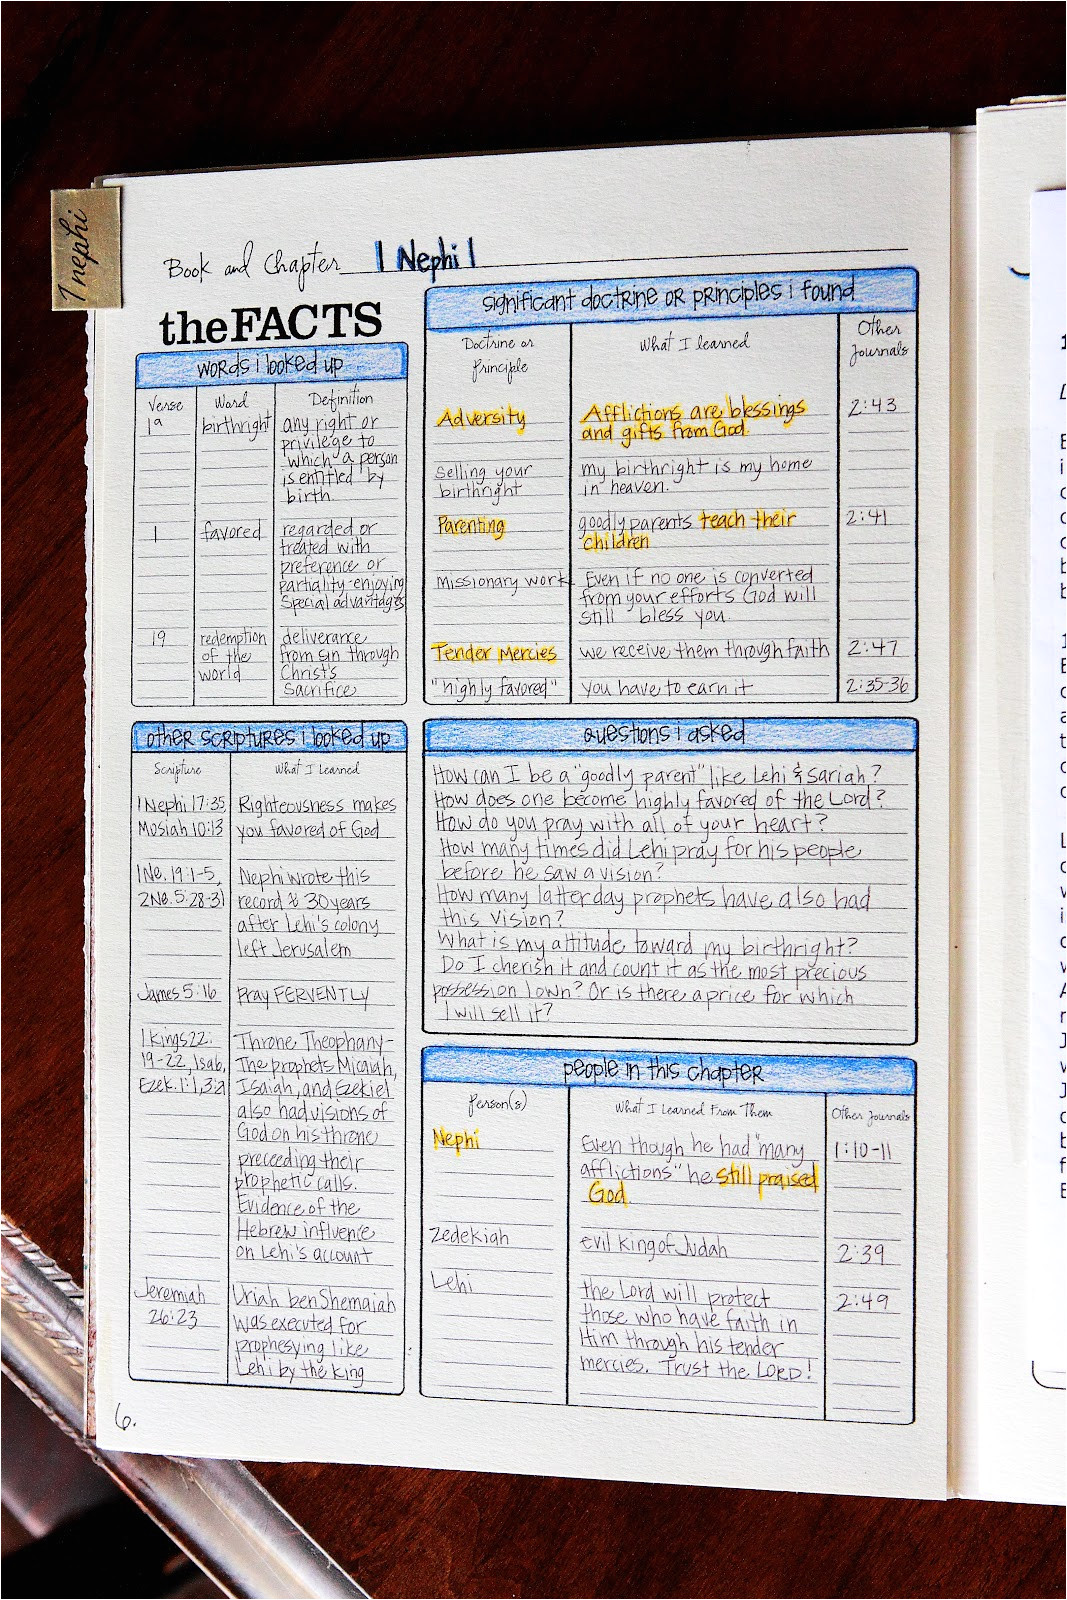 1 nephi
Book and Chapter 1 Nephi 1
theFACTS
words i looked up
Verse Word Definition
1a birthright any right or
privilege to
which a person
is entitled by
birth.
1 favored regarded or
treated with
preference or
partiality-enjoying
Special advantages
19 redemption deliverance
of the from sin through
world Christ's
Sacrifice
other scriptures i looked up
Scripture What I Learned
1 Nephi 17:35 Righteousness makes
Mosiah 10:13 you favored of God
1 Ne. 19:1-5, Nephi wrote this
2 Ne. 5:28-31 record ≈ 30 years
after Lehi's colony
left Jerusalem
James 5:16 pray FERVENTLY
1 Kings 22: Throne Theophany-
19-22, Isa 6, The prophets Micaiah,
Ezek. 1:1, 3:21 Isaiah, and Ezekiel
also had visions of
God on his throne
preceeding their
prophetic calls.
Evidence of the
Hebrew influence
on Lehi's account
Jeremiah Uriah ben Shemaiah
26:23 was executed for
prophesying like
Lehi by the king
6.
significant doctrine or principles i found
Doctrine or What I learned Other
Principle Journals
Adversity Afflictions are blessings 2:43
and gifts from God.
Selling your my birthright is my home
birthright in heaven.
Parenting goodly parents teach their 2:41
children
Missionary work Even if no one is converted
from your efforts God will
still bless you.
Tender Mercies we receive them through faith 2:47
"highly favored" you have to earn it 2:35-36
questions i asked
How can I be a "goodly parent" like Lehi & Sariah?
How does one become highly favored of the Lord?
How do you pray with all of your heart?
How many times did Lehi pray for his people
before he saw a vision?
How many latterday prophets have also had
this vision?
What is my attitude toward my birthright?
Do I cherish it and count it as the most precious
possession I own? Or is there a price for which
I will sell it?
people in this chapter
Person(s) What I Learned From Them Other Journals
Nephi Even though he had "many 1:10-11
afflictions" he still praised
God.
Zedekiah evil king of Judah 2:39
Lehi the Lord will protect 2:49
those who have faith in
Him through his tender
mercies. Trust the LORD!